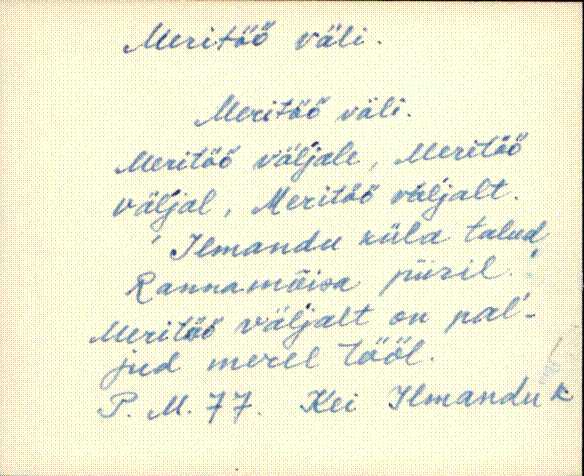 Meritöö väli.
Meritöö väli.
Meritöö väljale, Meritöö
väljal, Meritöö väljalt.
'Ilmandu küla talud
Rannamõisa piiril.'
Meritöö väljalt on pal'-
jud merel tööl.
P. M. 77. Kei Ilmandu k